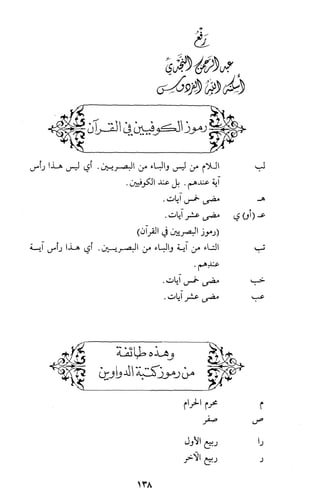 رفع
عبد الرحمن النجدي
أسكنه الله الفردوس
رموز الكوفيين في القرآن
لب اللام من ليس والباء من البصريين. أي ليس هذا رأس
آية عندهم. بل عند الكوفيين.
هـ مضى خمس آيات.
عـ (أو) ي مضى عشر آيات.
(رموز البصريين في القرآن)
تب التاء من آية والباء من البصريين. أي هذا رأس آية
عندهم.
خب مضى خمس آيات.
عب مضى عشر آيات.
وهذه طائفة
من رموز كتبة الدواوين
م محرم الحرام
ص صفر
را ربيع الأول
ر ربيع الآخر
١٣٨